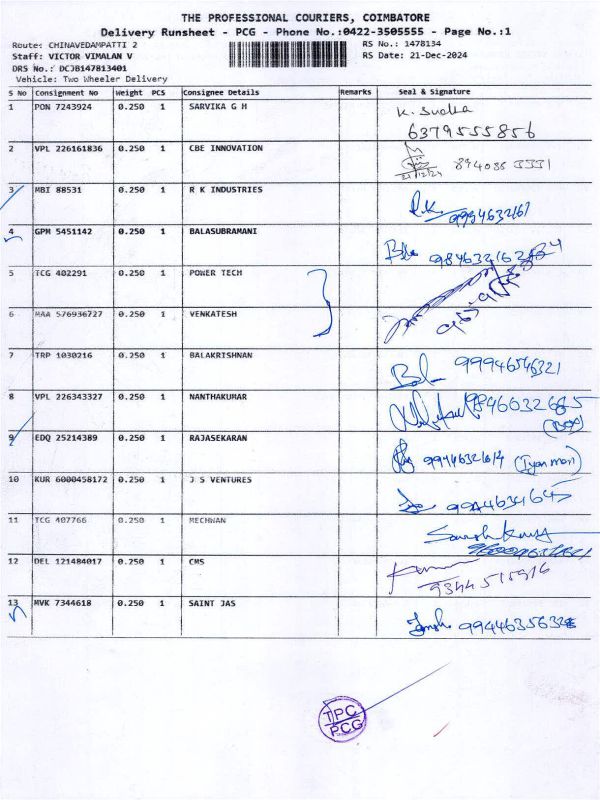 THE PROFESSIONAL COURIERS, COIMBATORE
Delivery Runsheet - PCG - Phone No.:0422-3505555 - Page No.:1
Route: CHINAVEDAMPATTI 2 RS No.: 1478134
Staff: VICTOR VIMALAN V RS Date: 21-Dec-2024
DRS No.: DCJB147813401
Vehicle: Two Wheeler Delivery
S No Consignment No Weight PCS Consignee Details Remarks Seal & Signature
1 PON 7243924 0.250 1 SARVIKA G H K. Sudha
6379555856
2 VPL 226161836 0.250 1 CBE INNOVATION
21/12/24
3 MBI 88531 0.250 1 R K INDUSTRIES R.K.
4 GPM 5451142 0.250 1 BALASUBRAMANI
5 TCG 402291 0.250 1 POWER TECH
6 MAA 576936727 0.250 1 VENKATESH
7 TRP 1030216 0.250 1 BALAKRISHNAN 99946546321
8 VPL 226343327 0.250 1 NANTHAKUMAR
9 EDQ 25214389 0.250 1 RAJASEKARAN
10 KUR 6000458172 0.250 1 J S VENTURES
11 TCG 407766 0.250 1 MECHWAN
12 DEL 121484017 0.250 1 CMS
9344515916
13 MVK 7344618 0.250 1 SAINT JAS
TPC
PCG